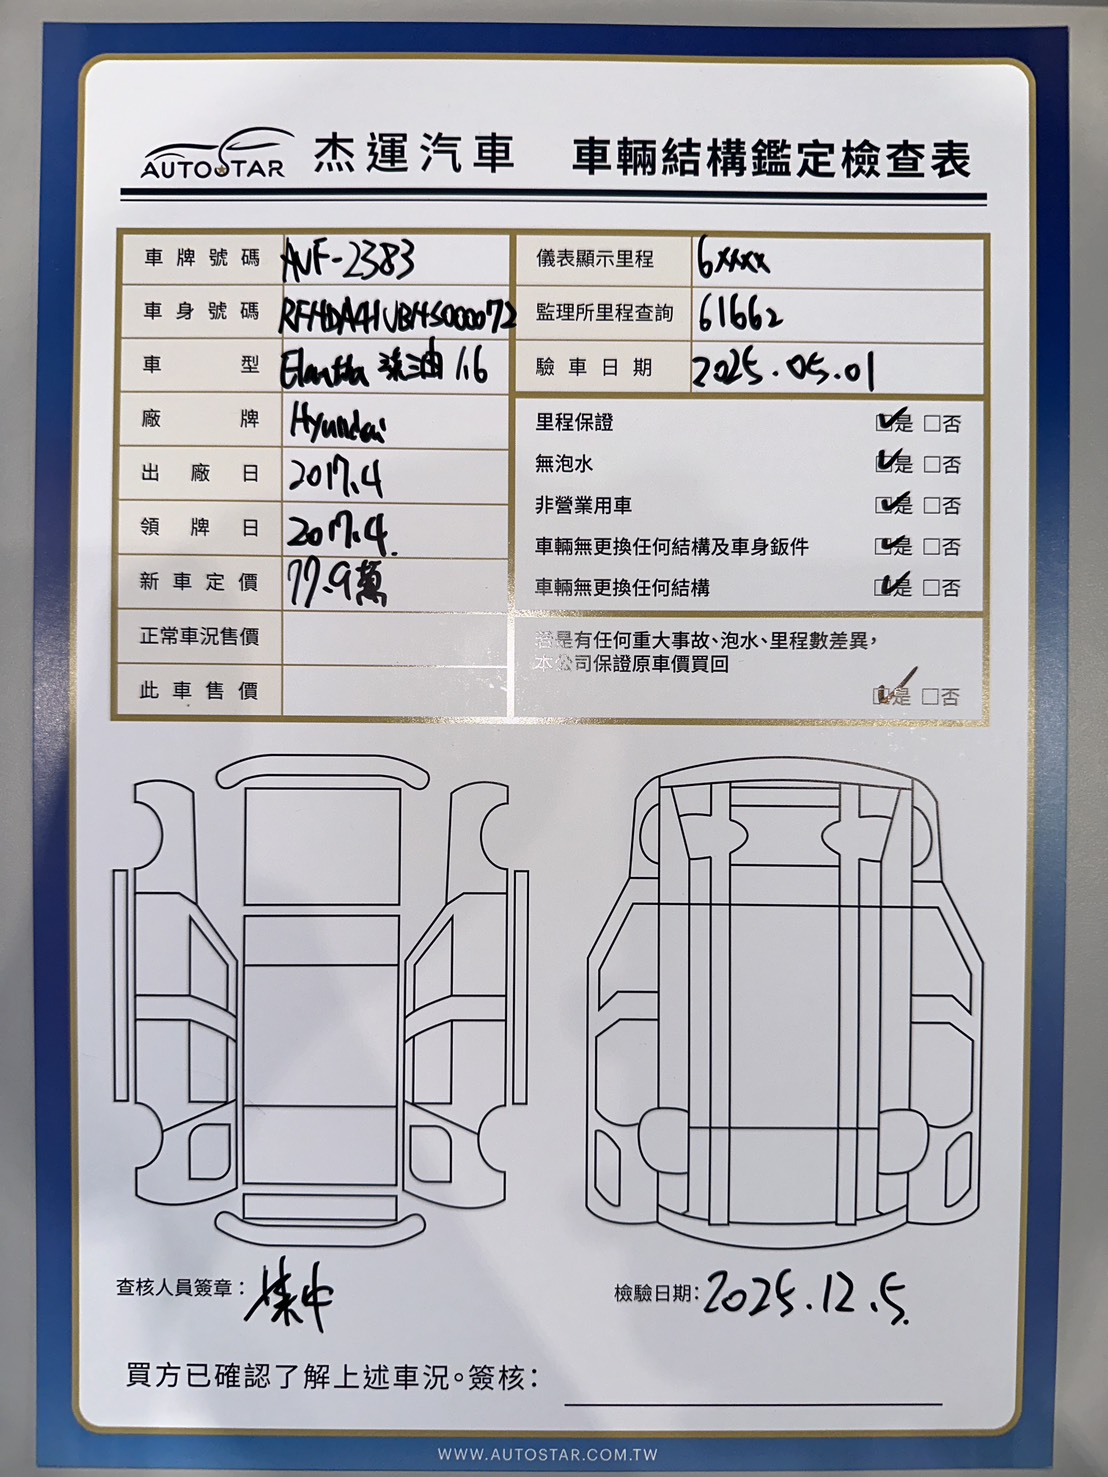 AUTOSTAR 杰運汽車 車輛結構鑑定檢查表
車牌號碼 AUF-2383 儀表顯示里程 6xxxx
車身號碼 RFHDA41UBHS000072 監理所里程查詢 61662
車型 Elantra 汽油 1.6 驗車日期 2025.05.01
廠牌 Hyundai
里程保證 ☑是 □否
出廠日 2017.4
無泡水 ☑是 □否
領牌日 2017.4.
非營業用車 ☑是 □否
新車定價 77.9萬
車輛無更換任何結構及車身鈑件 ☑是 □否
車輛無更換任何結構 ☑是 □否
正常車況售價
若是有任何重大事故、泡水、里程數差異，
本公司保證原車價買回
此車售價
☑是 □否
查核人員簽章：
檢驗日期：2025.12.5.
買方已確認了解上述車況。簽核：
WWW.AUTOSTAR.COM.TW